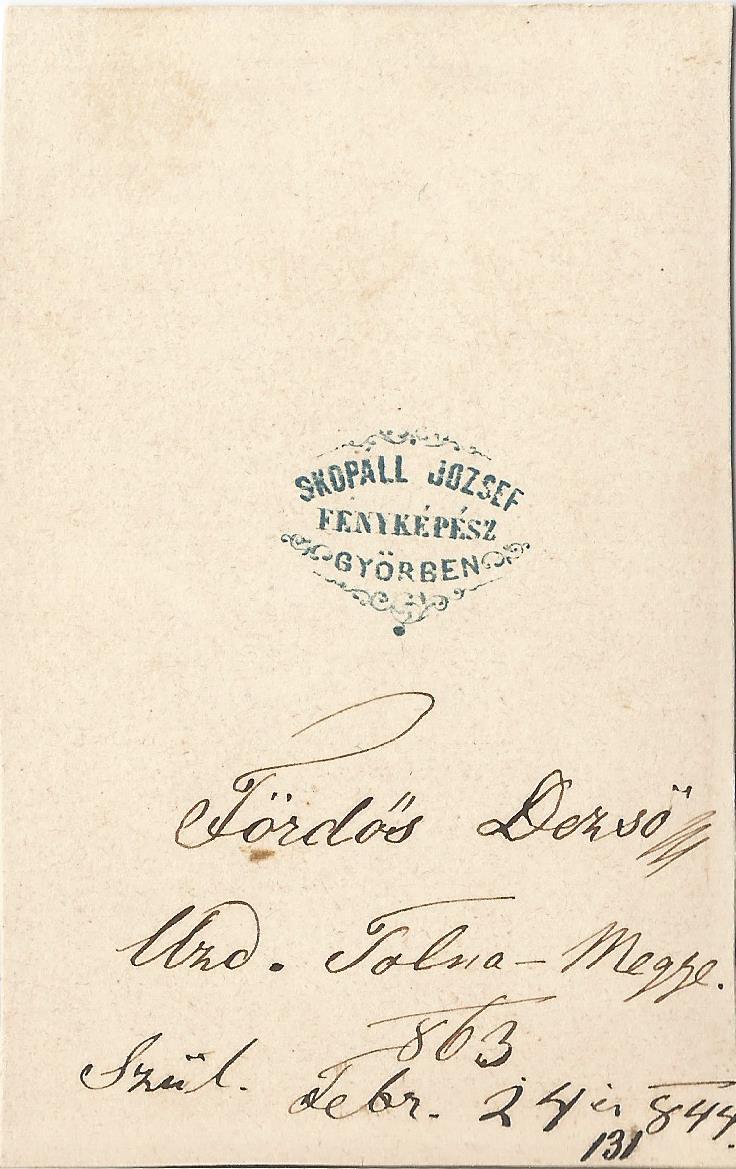 SKOPÁLL JOZSEF
FÉNYKÉPÉSZ
GYÖRBEN
Fördős Dezső
Uzd. Tolna - Megye.
863
Szül. Febr. 24én 844.
131